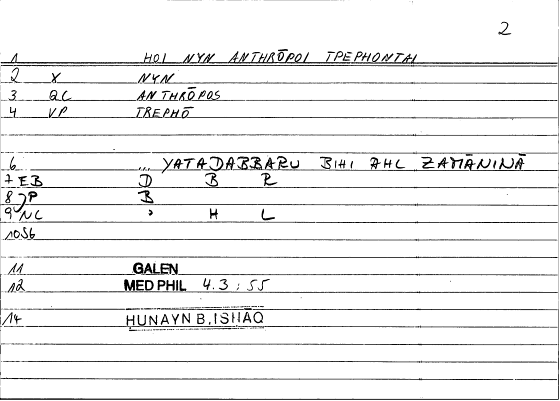 2
1 HOI NYN ANTHRŌPOI TPEPHONTAI
2 X NYN
3 QC ANTHRŌPOS
4 VP TREPHŌ
6 ... YATADABBARU BIHI AHL ZAMĀNINĀ
7 EB D B R
8 JP B
9 NC ʾ H L
10 56
11 GALEN
12 MED PHIL 4.3 : 55
14 HUNAYN B.ISHAQ